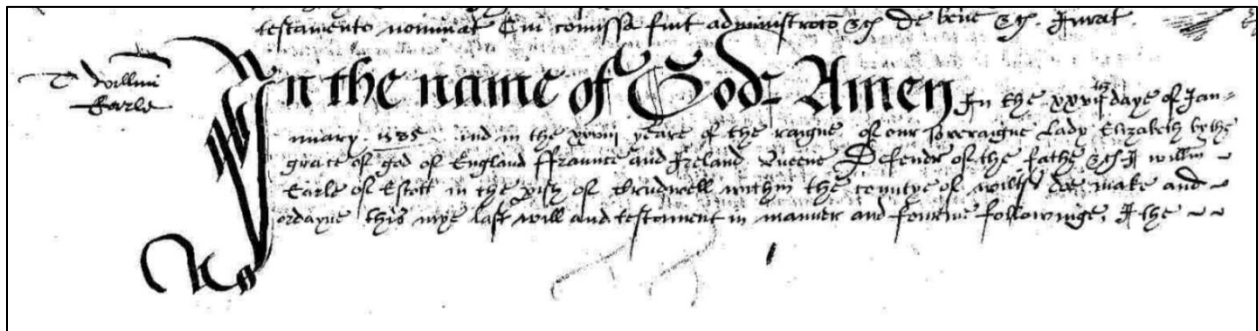 testamento nominat Cui comissa fuit administratō &c De bene &c Jurat
T Willmi
Earle
In the name of God Amen In the xxvith daye of Jan=
nuary 1585 And in the xxviii yeare of the raigne of our Soveraigne Lady Elizabeth by the
grace of god of England ffraunce and Ireland Queene Defendr of the faithe &c I willm
Earle of Estott in the pish of Crudwell within the countye of wilts doe make and
ordayne this mye last will and testament in manner and fourme followinge, I the